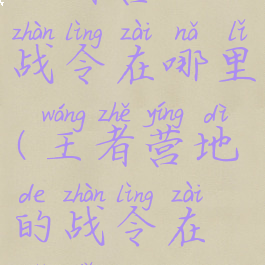 zhàn lìng zài nǎ lǐ
战令在哪里
wáng zhě yíng dì
(王者营地
de zhàn lìng zài
的战令在